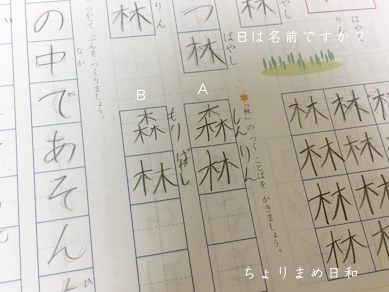 Bは名前ですか？
林
はやし
つ
林
林
りん
つかって ぶんを つくりましょう。
の中であそん
なか
B
A
「林」のつく ことばを かきましょう。
森林
しんりん
森林
もりばやし
林林林
林林林
林林林
林林
ちょりまめ日和